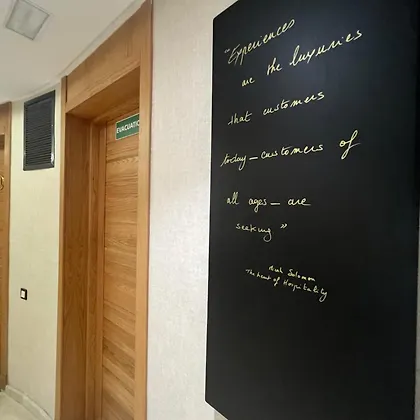 EVACUATIO
"Experiences
are the luxuries
that customers
today_customers of
all ages_are
seeking"
Micah Solomon
The heart of Hospitality